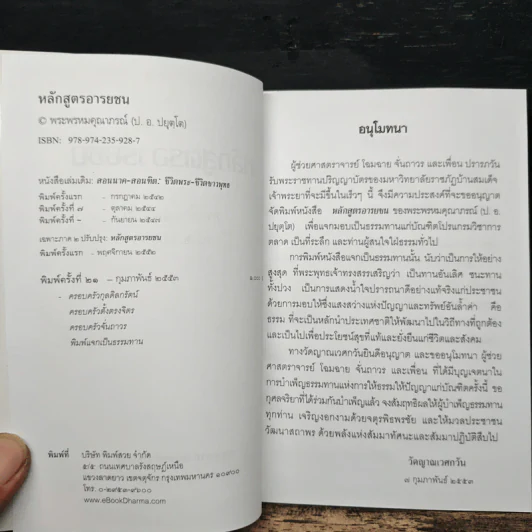 หลักสูตรอารยชน
© พระพรหมคุณาภรณ์ (ป. อ. ปยุตฺโต)
ISBN: 978-974-235-928-7
หนังสือเล่มเดิม: สอนนาค-สอนทิด: ชีวิตพระ-ชีวิตชาวพุทธ
พิมพ์ครั้งแรก - กรกฎาคม ๒๕๔๒
พิมพ์ครั้งที่ ๗ - ตุลาคม ๒๕๔๔
พิมพ์ครั้งที่ - - กันยายน ๒๕๔๗
เฉพาะภาค ๒ ปรับปรุง: หลักสูตรอารยชน
พิมพ์ครั้งแรก - พฤศจิกายน ๒๕๕๒
พิมพ์ครั้งที่ ๒๑ - กุมภาพันธ์ ๒๕๕๓
- ครอบครัวกุลดิลกรัตน์
ครอบครัวตั้งตรงจิตร
ครอบครัวจั่นถาวร
พิมพ์แจกเป็นธรรมทาน
พิมพ์ที่ บริษัท พิมพ์สวย จำกัด
๕/๕ ถนนเทศบาลรังสฤษฎ์เหนือ
แขวงลาดยาว เขตจตุจักร กรุงเทพมหานคร ๑๐๙๐๐
โทร. ๐-๒๙๕๓-๙๖๐๐
www.eBookDharma.com
อนุโมทนา
ผู้ช่วยศาสตราจารย์ โฉมฉาย จั่นถาวร และเพื่อน ปรารภวัน
รับพระราชทานปริญญาบัตรของมหาวิทยาลัยราชภัฏบ้านสมเด็จ
เจ้าพระยาที่จะมีขึ้นในเร็วๆ นี้ จึงมีความประสงค์ที่จะขออนุญาต
จัดพิมพ์หนังสือ หลักสูตรอารยชน ของพระพรหมคุณาภรณ์ (ป. อ.
ปยุตฺโต) เพื่อแจกมอบเป็นธรรมทานแก่บัณฑิตโปรแกรมวิชาการ
ตลาด เป็นที่ระลึก และท่านผู้สนใจใฝ่ธรรมทั่วไป
การพิมพ์หนังสือแจกเป็นธรรมทานนั้น นับว่าเป็นการให้อย่าง
สูงสุด ที่พระพุทธเจ้าทรงสรรเสริญว่า เป็นทานอันเลิศ ชนะทาน
ทั้งปวง เป็นการแสดงน้ำใจปรารถนาดีอย่างแท้จริงแก่ประชาชน
ด้วยการมอบให้ซึ่งแสงสว่างแห่งปัญญาและทรัพย์อันล้ำค่า คือ
ธรรม ที่จะเป็นหลักนำประเทศชาติให้พัฒนาไปในวิถีทางที่ถูกต้อง
และเป็นไปเพื่อประโยชน์สุขที่แท้และยั่งยืนแก่ชีวิตและสังคม
ทางวัดญาณเวศกวันยินดีอนุญาต และขออนุโมทนา ผู้ช่วย
ศาสตราจารย์ โฉมฉาย จั่นถาวร และเพื่อน ที่ได้มีบุญเจตนาใน
การบำเพ็ญธรรมทานแห่งการให้ธรรมให้ปัญญาแก่บัณฑิตครั้งนี้ ขอ
กุศลจริยาที่ได้ร่วมกันบำเพ็ญแล้ว จงสัมฤทธิผลให้ผู้บำเพ็ญธรรมทาน
ทุกท่าน เจริญงอกงามด้วยจตุรพิธพรชัย และให้มวลประชาชน
วัฒนาสถาพร ด้วยพลังแห่งสัมมาทัศนะและสัมมาปฏิบัติสืบไป
วัดญาณเวศกวัน
๗ กุมภาพันธ์ ๒๕๕๓